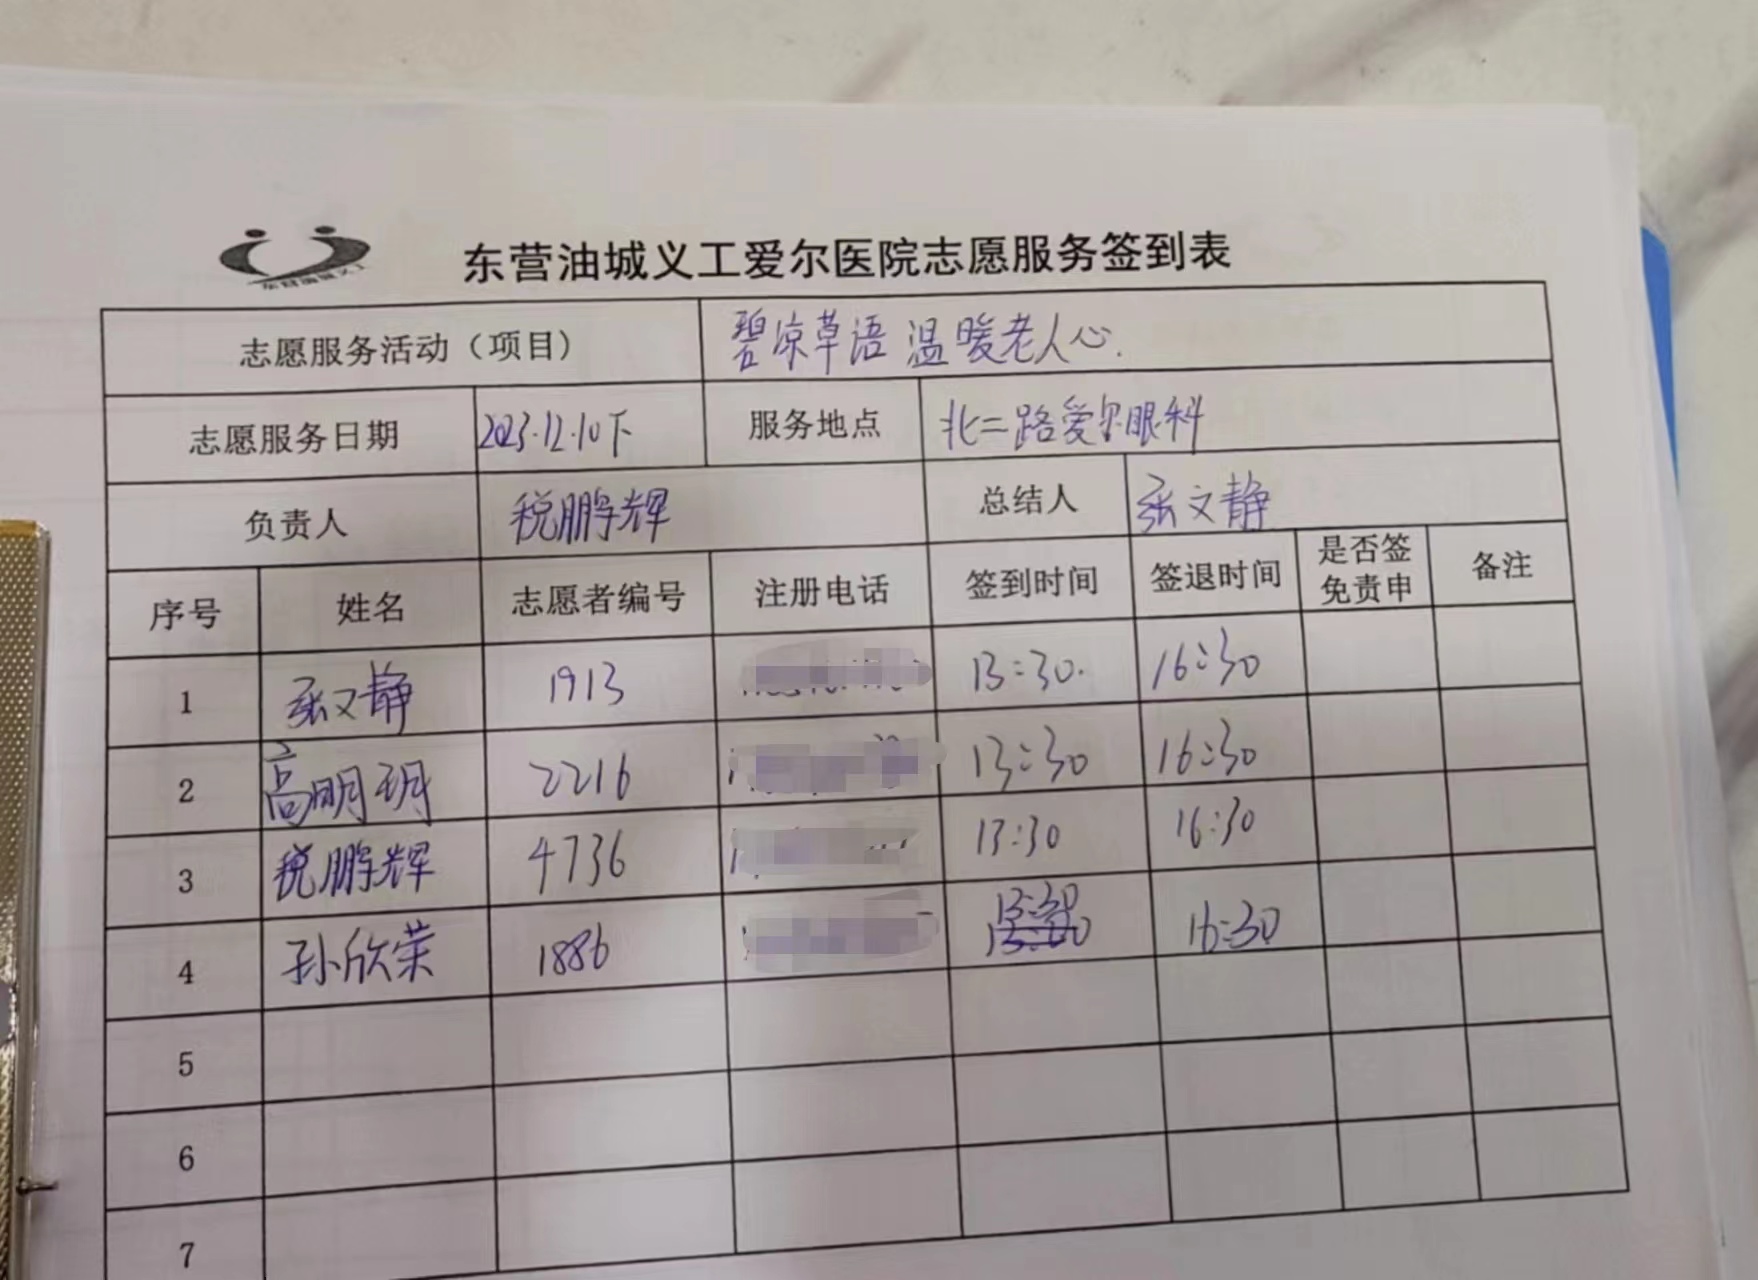 东营油城义工
东营油城义工爱尔医院志愿服务签到表
志愿服务活动（项目） 碧凉草语 温暖老人心.
志愿服务日期 2023.12.10下 服务地点 北二路爱尔眼科
负责人 税鹏辉 总结人 张文静
序号 姓名 志愿者编号 注册电话 签到时间 签退时间 是否签免责申 备注
1 张文静 1913 13:30. 16:30
2 高明玥 2216 13:30 16:30
3 税鹏辉 4736 13:30 16:30
4 孙欣荣 1886 13:30 16:30
5
6
7